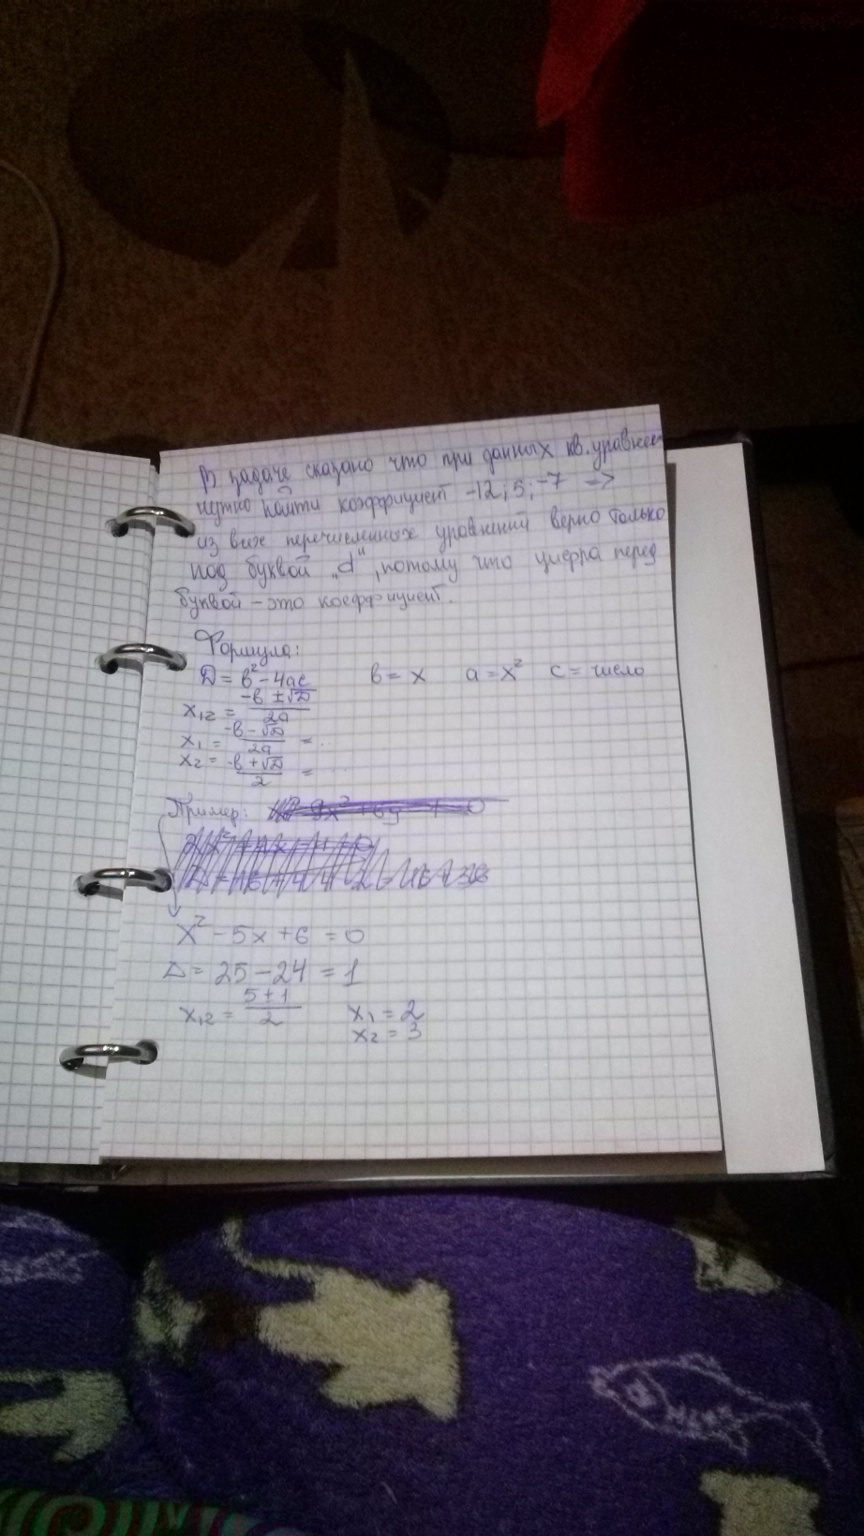 В задаче сказано что при данных кв. уравнен
нужно найти коэффициент -12; 5; -7 ->
из выше перечисленных уравнений верно только
под буквой "d", потому что цифра перед
буквой - это коеффициент.
Формула:
D = в² - 4ас    в = x    a = x²    c = число
x₁₂ = -в ± √D / 2a
x₁ = -в - √D / 2a =
x₂ = -в + √D / 2 =
Пример:
x² - 5x + 6 = 0
D = 25 - 24 = 1
x₁₂ = 5 ± 1 / 2    x₁ = 2
x₂ = 3